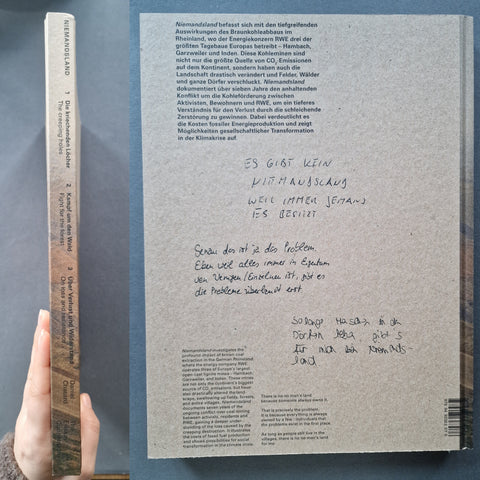 NIEMANDSLAND
1 Die kriechenden Löcher
The creeping holes
2 Kampf um den Wald
Fight for the forest
3 Über Verlust und Widerstand
On loss and resistance
Daniel
Chatard
Niemandsland befasst sich mit den tiefgreifenden
Auswirkungen des Braunkohleabbaus im
Rheinland, wo der Energiekonzern RWE drei der
größten Tagebaue Europas betreibt – Hambach,
Garzweiler und Inden. Diese Kohleminen sind
nicht nur die größte Quelle von CO₂ Emissionen
auf dem Kontinent, sondern haben auch die
Landschaft drastisch verändert und Felder, Wälder
und ganze Dörfer verschluckt. Niemandsland
dokumentiert über sieben Jahre den anhaltenden
Konflikt um die Kohleförderung zwischen
Aktivisten, Bewohnern und RWE, um ein tieferes
Verständnis für den Verlust durch die schleichende
Zerstörung zu gewinnen. Dabei verdeutlicht es
die Kosten fossiler Energieproduktion und zeigt
Möglichkeiten gesellschaftlicher Transformation
in der Klimakrise auf.
ES GIBT KEIN
NIEMANDSLAND
WEIL IMMER JEMAND
ES BESITZT
Genau das ist ja das Problem.
Eben weil alles immer in Eigentum
von Wenigen/Einzelnen ist, gibt es
die Probleme überhaupt erst.
Solange Menschen in den
Dörfern leben, gibt's
für mich kein Niemands-
land
Niemandsland investigates the
profound impact of brown coal
extraction in the German Rhineland,
where the energy company RWE
operates three of Europe's largest
open-cast lignite mines – Hambach,
Garzweiler, and Inden. These mines
are not only the continent's biggest
source of CO₂ emissions, but have
also drastically altered the land-
scape, swallowing up fields, forests,
and entire villages. Niemandsland
documents seven years of the
ongoing conflict over coal mining
between activists, residents and
RWE, gaining a deeper under-
standing of the loss caused by the
creeping destruction. It illustrates
the costs of fossil fuel production
and shows possibilities for social
transformation in the climate crisis.
There is no no man's land
because someone always owns it.
That is precisely the problem,
it is because everything is always
owned by a few / individuals that
the problems exist in the first place.
As long as people still live in the
villages, there is no no man's land
for me.